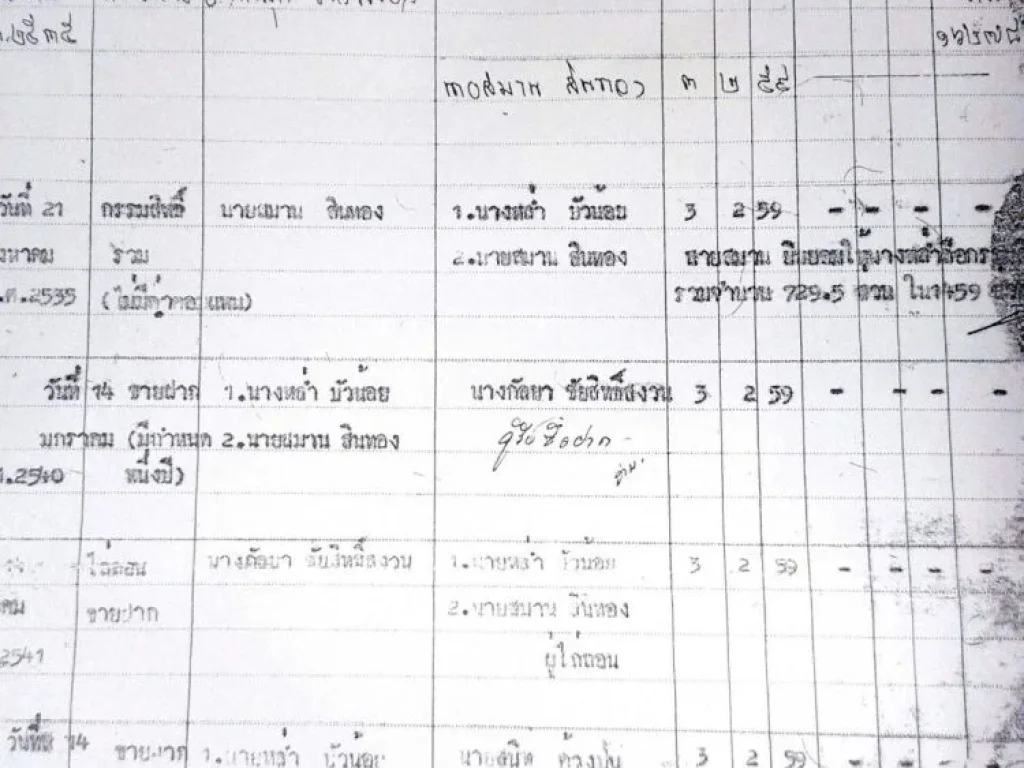 .๒๕๓๕
๑๖๒๗๘
สมาน สินทอง ๓ ๒ ๕๙
วันที่ 21 กรรมสิทธิ์ นายสมาน สินทอง 1.นางหล่ำ บัวน้อย 3 2 59 - - - -
งหาคม รวม 2.นายสมาน สินทอง นายสมาน ยินยอมให้นางหล่ำถือกรรม
.ศ.2535 (ไม่มีค่าตอบแทน) รวมจำนวน 729.5 ส่วน ใน1459
วันที่ 14 ขายฝาก 1.นางหล่ำ บัวน้อย นางกัลยา ชัยสิทธิ์สงวน 3 2 59 - - - -
มกราคม (มีกำหนด 2.นายสมาน สินทอง ผู้รับซื้อฝาก
.2540 หนึ่งปี)
14 ไถ่ถอน นางกัลยา ชัยสิทธิ์สงวน 1.นายหล่ำ บัวน้อย 3 2 59 - - - -
คม ขายฝาก 2.นายสมาน สินทอง
2541 ผู้ไถ่ถอน
วันที่ 14 ขายฝาก 1.นายหล่ำ บัวน้อย นายสนิท 3 2 59 - - - -